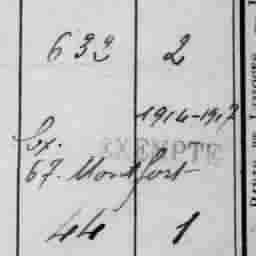 632 2
1914-1917
Ex. EXEMPTE
67. Montfort
44 1